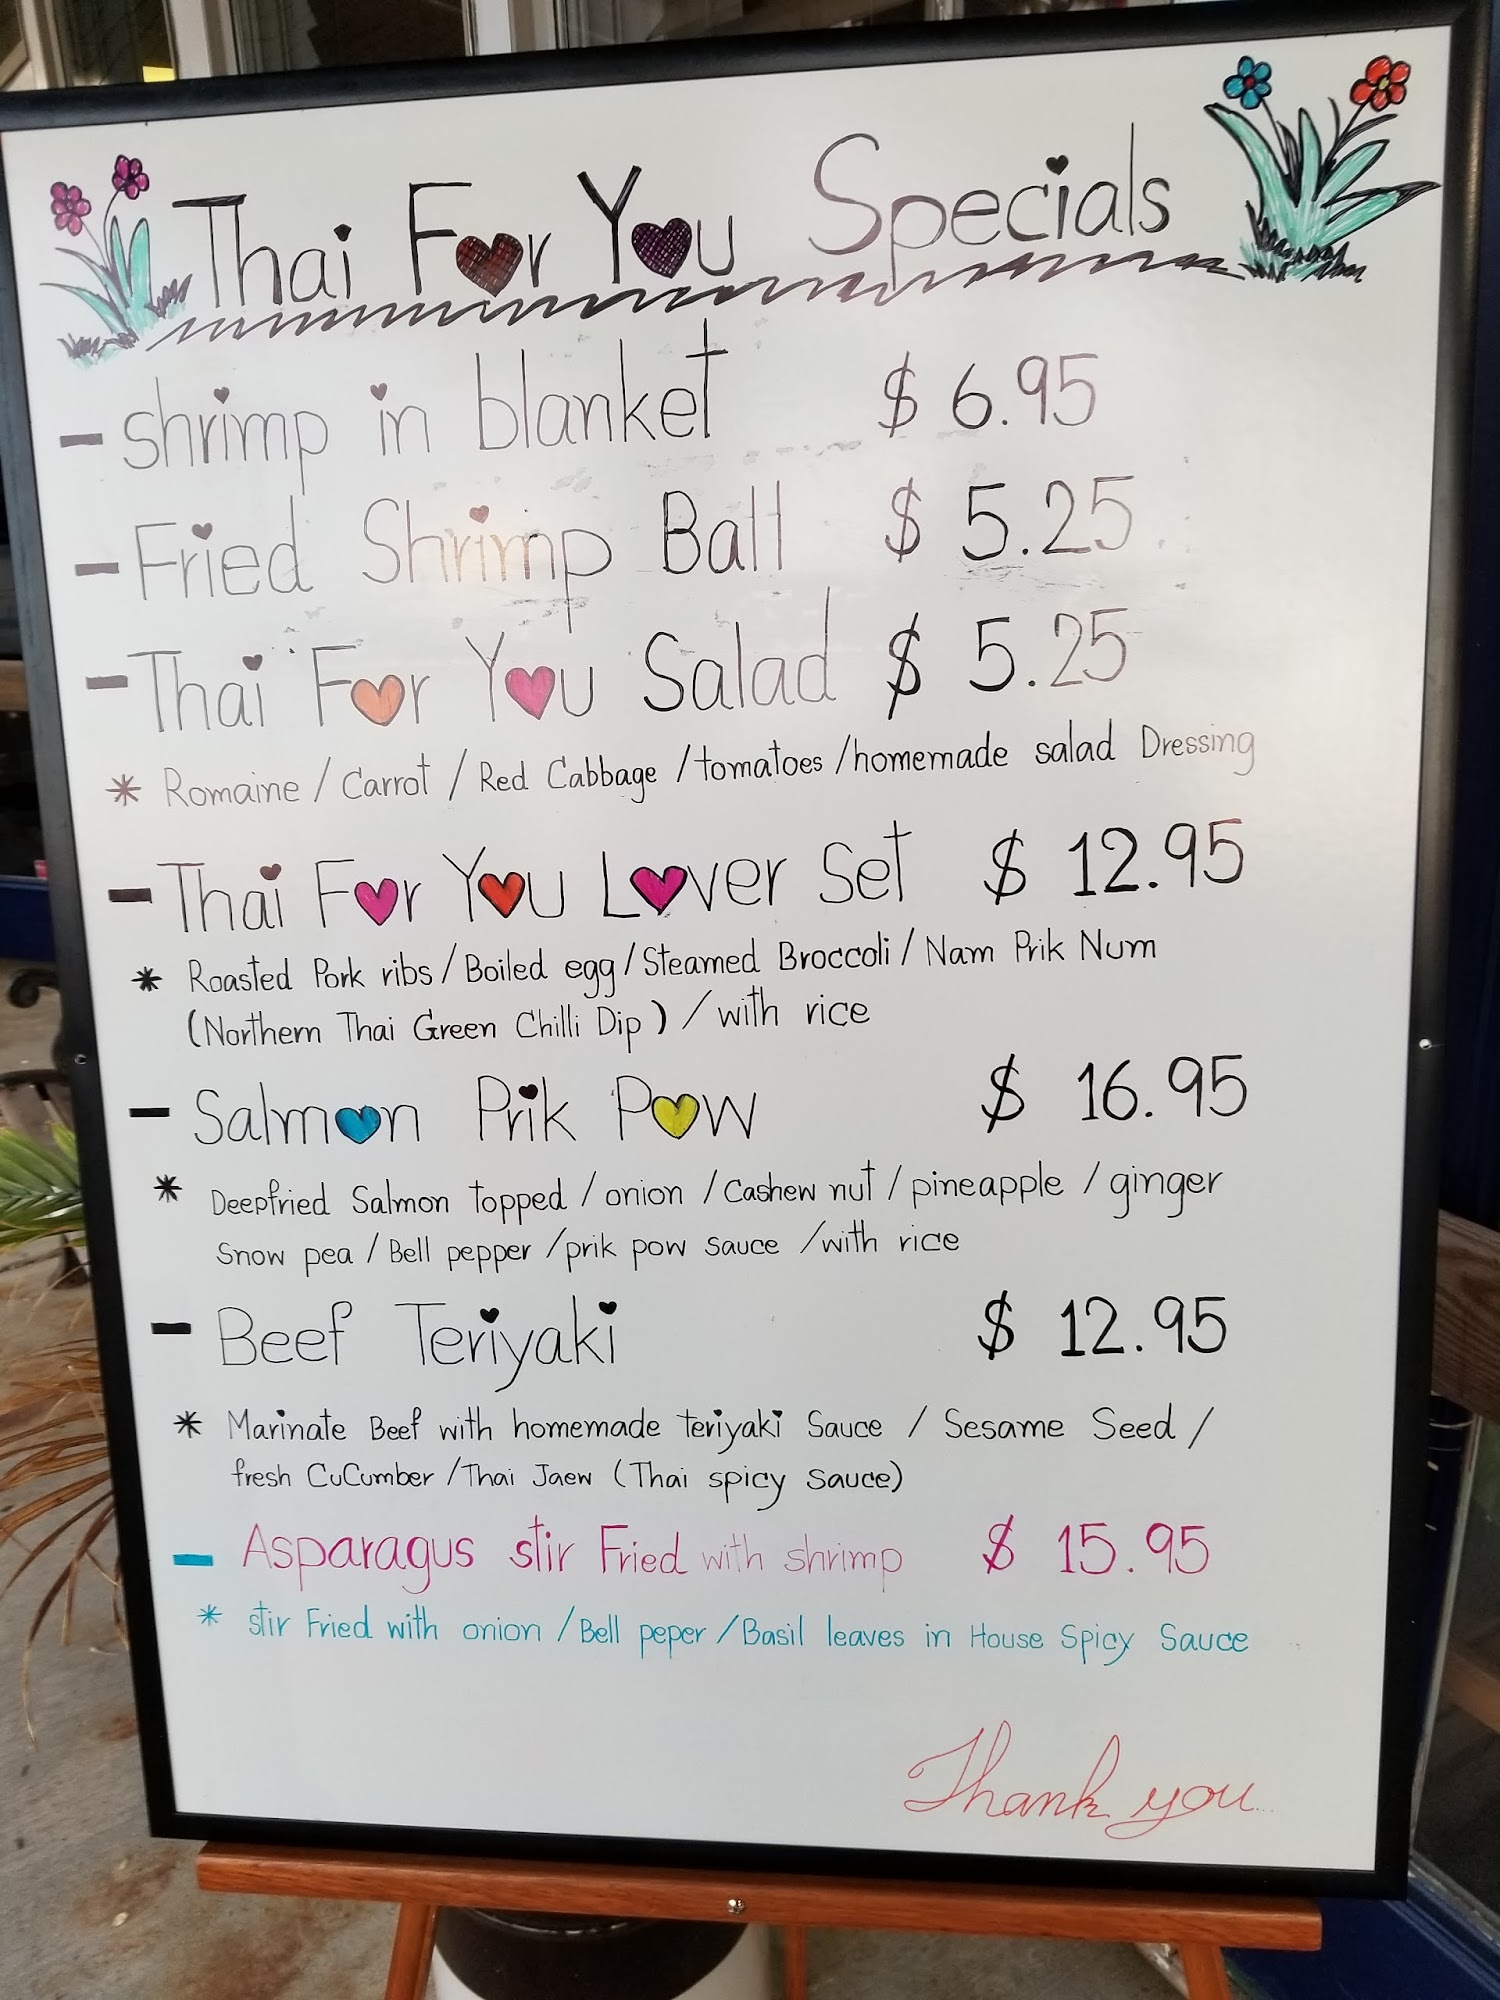 Thai For You Specials
- shrimp in blanket $ 6.95
- Fried Shrimp Ball $ 5.25
- Thai For You Salad $ 5.25
* Romaine / Carrot / Red Cabbage / tomatoes / homemade salad Dressing
- Thai For You Lover Set $ 12.95
* Roasted Pork ribs / Boiled egg / Steamed Broccoli / Nam Prik Num
(Northern Thai Green Chilli Dip) / with rice
- Salmon Prik Pow $ 16.95
* Deepfried Salmon topped / onion / Cashew nut / pineapple / ginger
Snow pea / Bell pepper / prik pow sauce / with rice
- Beef Teriyaki $ 12.95
* Marinate Beef with homemade teriyaki Sauce / Sesame Seed /
fresh CuCumber / Thai Jaew (Thai spicy sauce)
- Asparagus stir Fried with shrimp $ 15.95
* stir Fried with onion / Bell peper / Basil leaves in House Spicy Sauce
Thank you...